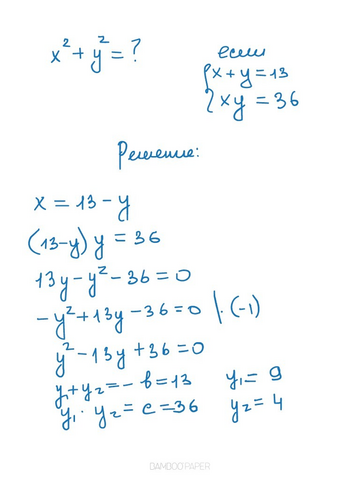 x² + y² = ? если
{x + y = 13
{xy = 36
Решение:
x = 13 - y
(13-y) y = 36
13y - y² - 36 = 0
- y² + 13y - 36 = 0 |·(-1)
y² - 13y + 36 = 0
y₁ + y₂ = - b = 13 y₁ = 9
y₁ · y₂ = c = 36 y₂ = 4
BAMBOO PAPER